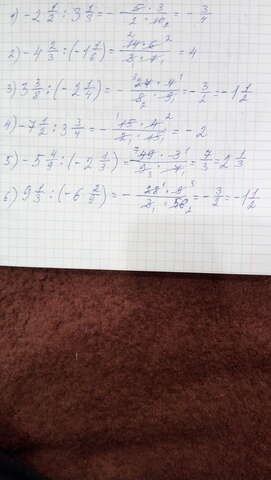 1) -2 1/2 : 3 1/3 = - 5 · 3 / 2 · 10 2 = - 3/4
2) -4 2/3 : (-1 1/6) = 2 14 · 6 2 / 3 · 7 1 = 4
3) 3 3/8 : (-2 1/4) = - 3 27 · 4 1 / 8 2 · 9 1 = - 3/2 = -1 1/2
4) -7 1/2 : 3 3/4 = - 1 15 · 4 2 / 2 1 · 15 1 = -2
5) -5 4/9 : (-2 1/3) = 7 49 · 3 1 / 9 3 · 7 1 = 7/3 = 2 1/3
6) 9 1/3 : (-6 2/9) = - 28 1 · 9 3 / 3 1 · 56 2 = - 3/2 = -1 1/2